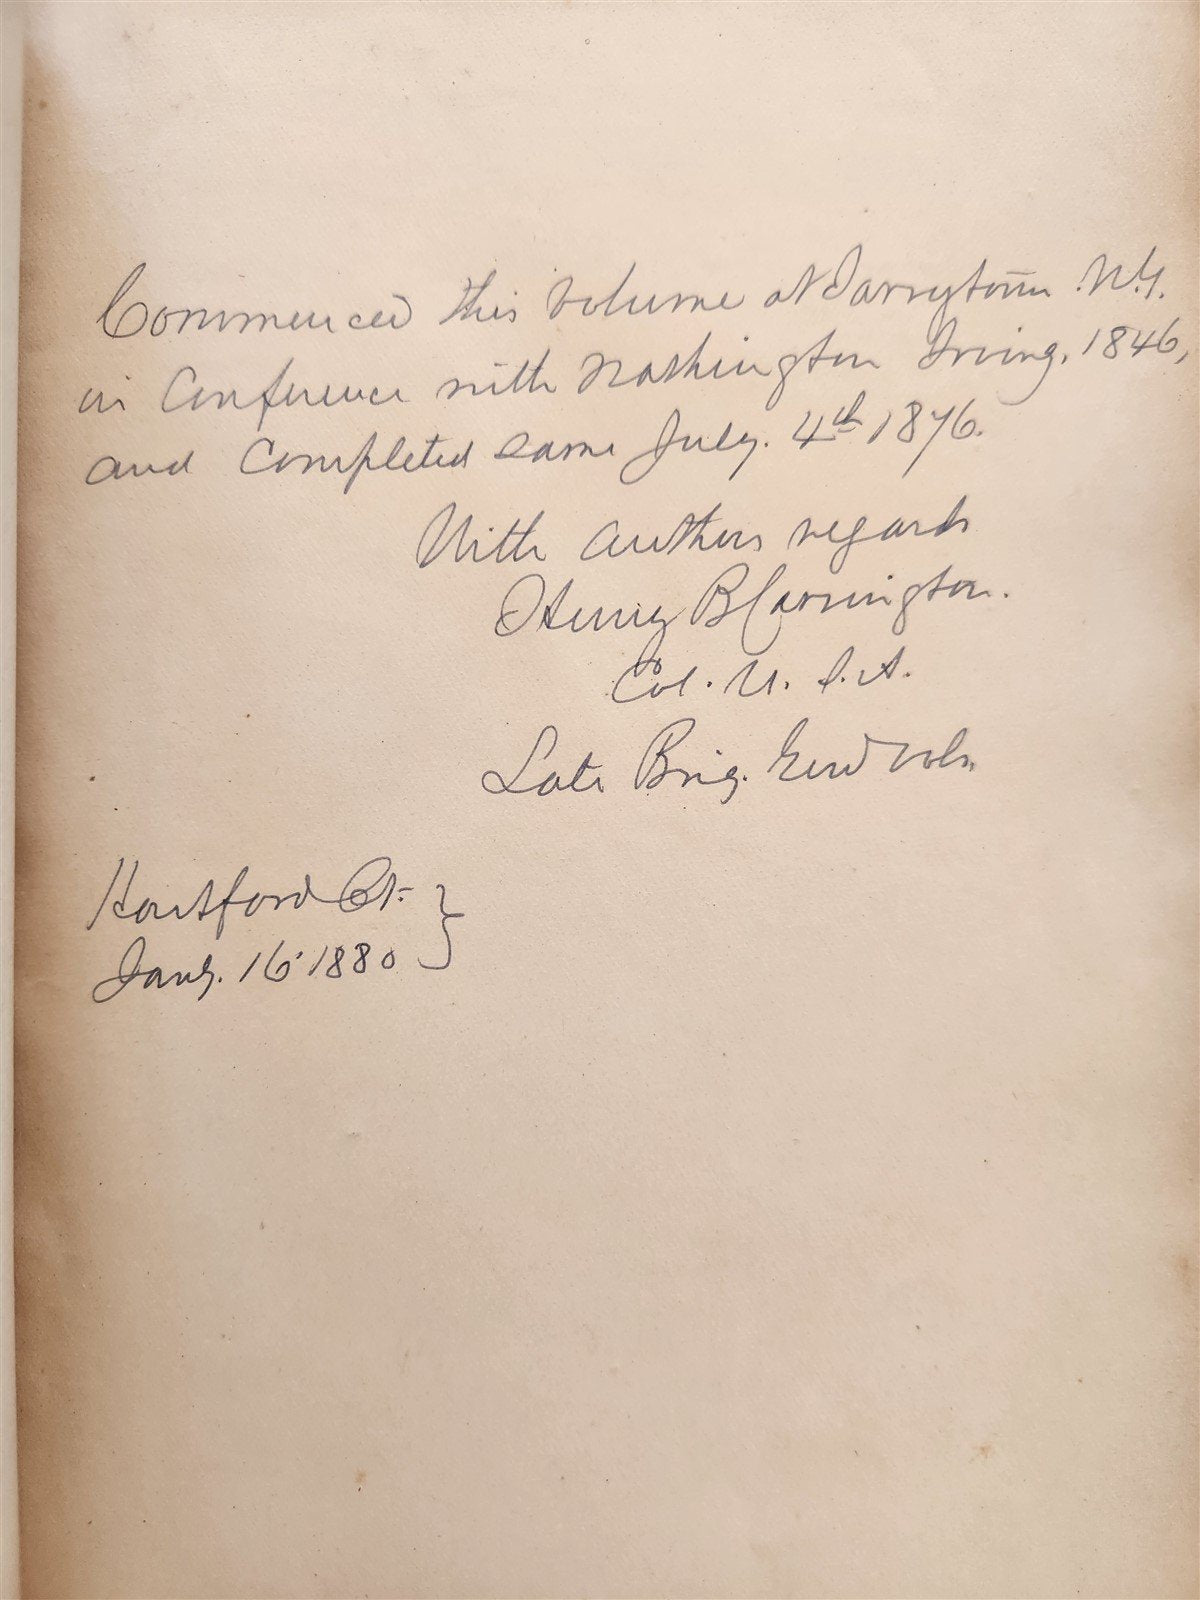 Commenced this volume at Tarrytown N.Y.
in Conference with Washington Irving, 1846,
and Completed same July. 4th 1876.
With authors regards
Henry B Carrington.
Col. U. S. A.
Late Brig. Genl Vols.
Hartford Ct.
Jany. 16 1880